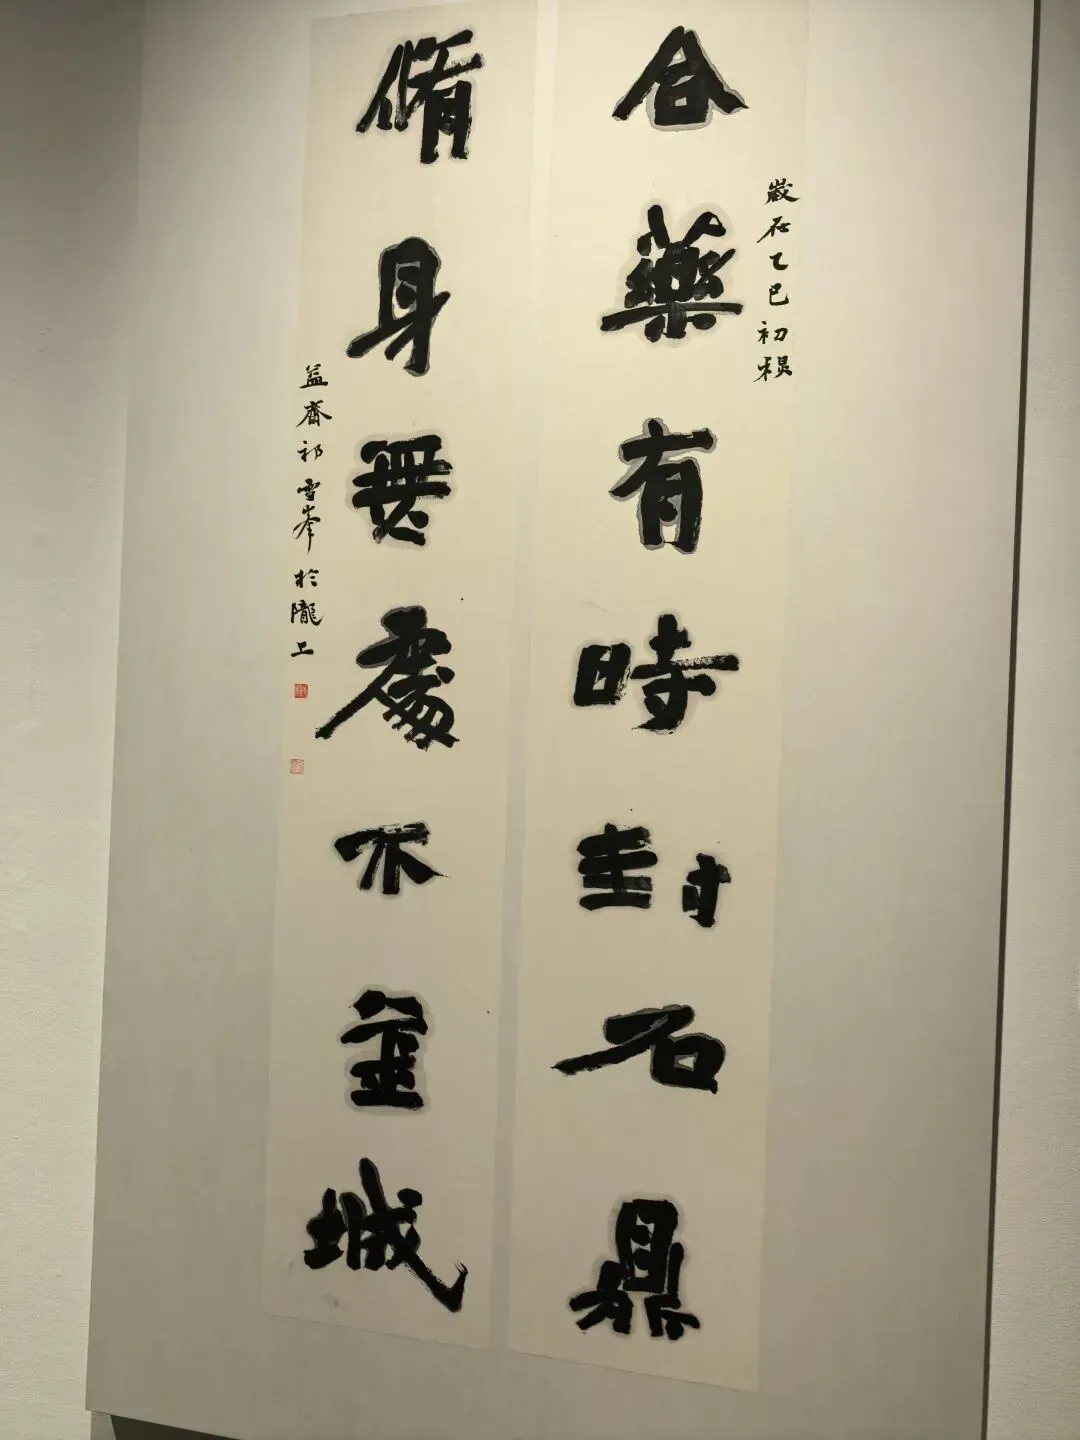 歲在乙巳初
合藥有時封石鼎
脩身無處不金城
益齋祁雪峯於隴上